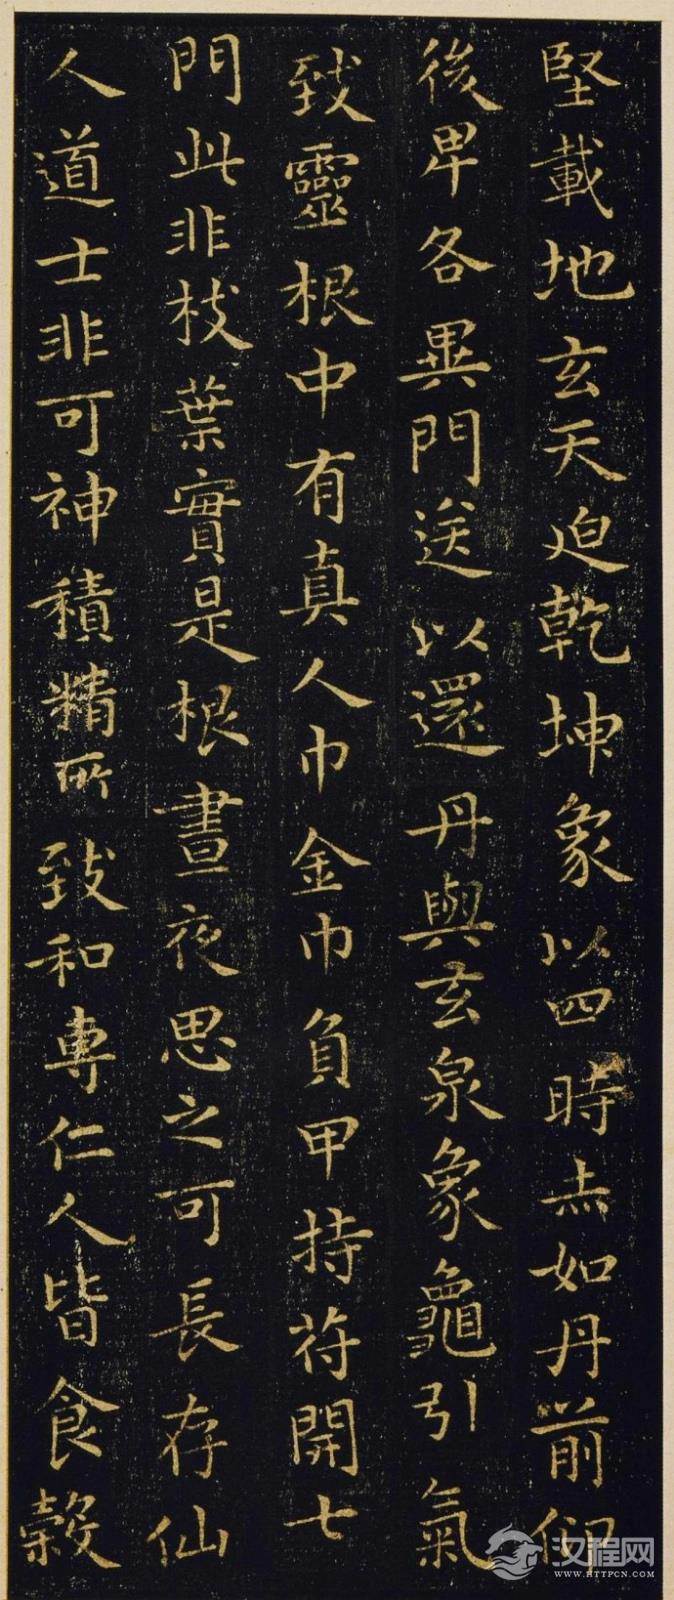 堅載地玄天迫乾坤象以四時赤如丹前仰
後卑各異門送以還丹與玄泉象龜引氣
致靈根中有真人巾金巾負甲持苻開七
門此非枝葉實是根晝夜思之可長存仙
人道士非可神積精所致和專仁人皆食穀
汉程网
WWW.HTTPCN.COM